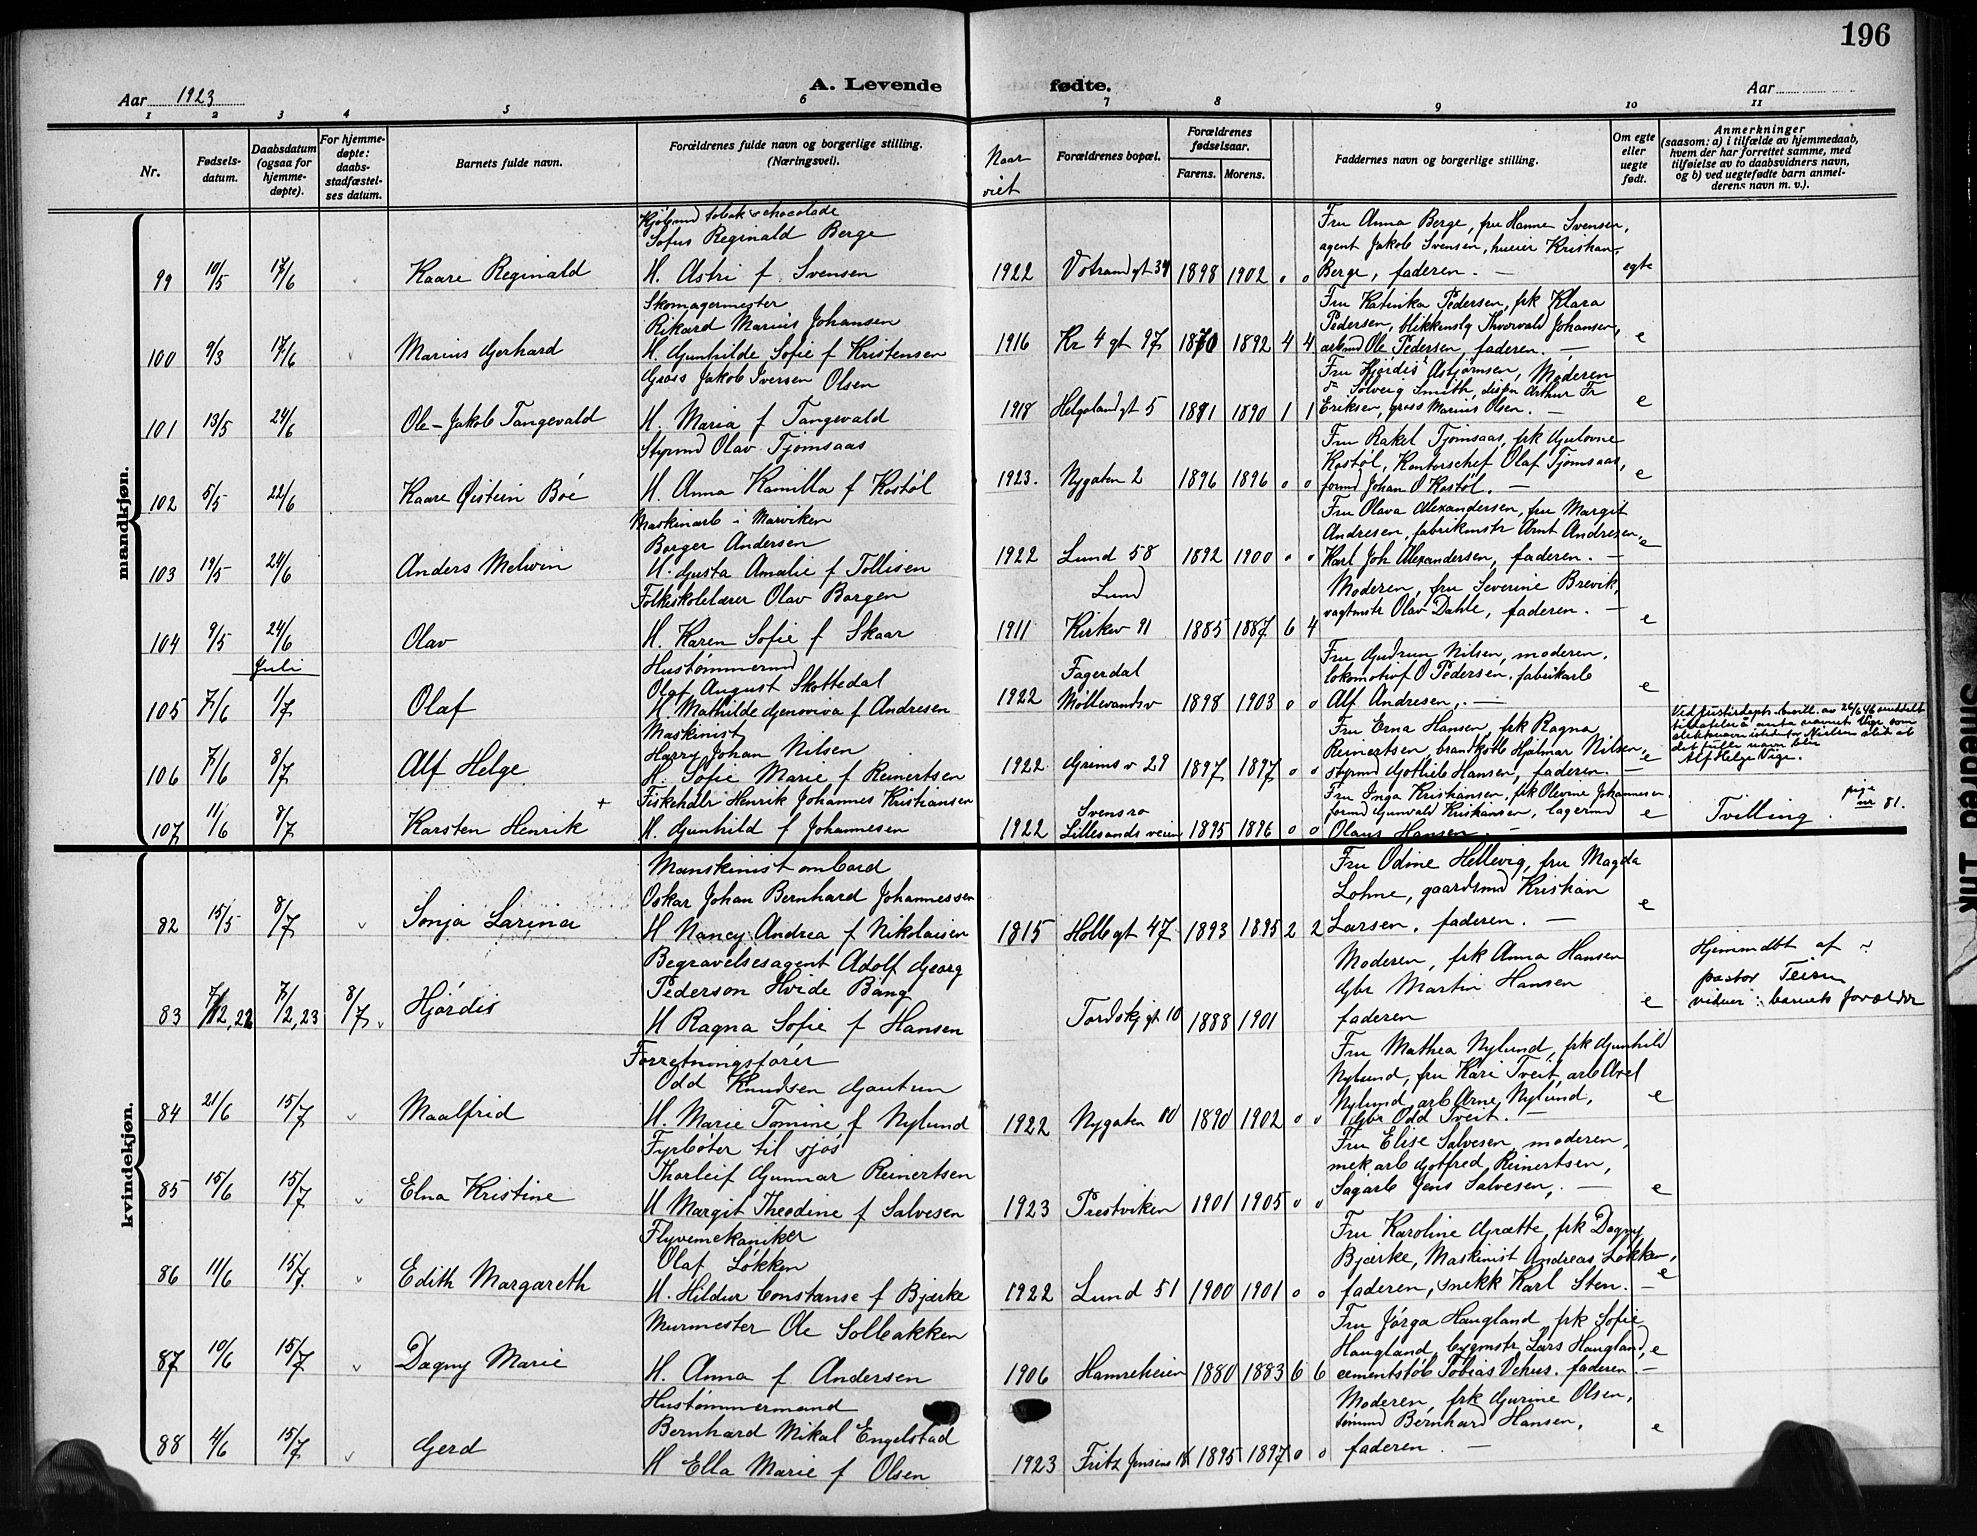 196
A. Levende fødte.
Aar 1923
Aar
1 2 3 4 5 6 7 8 9 10 11
Nr.
Fødsels-
datum.
Daabsdatum
(ogsaa for
hjemme-
døpte).
For hjemme-
døpte:
daabs-
stadfæstel-
ses datum.
Barnets fulde navn.
Forældrenes fulde navn og borgerlige stilling.
(Næringsvei).
Naar
viet
Forældrenes bopæl.
Forældrenes
fødselsaar.
Farens. Morens.
Faddernes navn og borgerlige stilling.
Om egte
eller
uegte
født.
Anmerkninger
(saasom: a) i tilfælde av hjemmedaab,
hvem der har forrettet samme, med
tilføielse av to daabsvidners navn,
og b) ved uegtefødte barn anmel-
derens navn m. v.).
mandkjøn.
99 10/5 17/6 Kaare Reginald
Kjøbmd tobak & chocolade
Sofus Reginald Berge
H. Astri f. Svensen
1922 V Strandgt 34 1898 1902 0 0
Fru Anna Berge, fru Hanna Svensen,
agent Jakob Svensen, Kristian
Berge, faderen. —
egte
100 9/3 17/6 Marius Gerhard
Skomagermester
Rikard Marius Johansen
H. Gunhilde Sofie f Kristensen
1916 Kr 4 gt 97 1870 1892 4 4
Fru Katinka Pedersen, frk Klara
Pedersen, blikkenslg Thorvald Johansen,
arbmd Ole Pedersen, faderen. —
e
101 13/5 24/6 Ole-Jakob Tangevald
Gross Jakob Iversen Olsen
H. Maria f Tangevald
1918 Helgolandgt 5 1881 1890 1 1
Fru Hjørdis Asbjørnsen, Moderen
Solveig Smith, dispn Arthur Fr
Eriksen, gross Marius Olsen. —
e
102 5/5 22/6 Kaare Øistein Boe
Styrmd Olav Tjomsaas
H. Anna Kamilla f Kostøl
1923. Nygaten 2 1896 1896 0 0
Fru Rakel Tjomsaas, frk Gulovne
Kostøl, Kontorschef Olaf Tjomsaas,
formd Johan O Kostøl. —
e
103 19/5 24/6 Anders Melvin
Maskinarb i Marviken
Borger Andersen
H. Gusta Amalie f Tollisen
1922 Lund 58 1892 1900 0 0
Fru Olava Alexandersen, fru Margit
Andresen, fabrikmstr Arnt Andresen,
Karl Joh Alexandersen, faderen. —
e
104 9/5 24/6 Olav
Folkeskolelærer Olav Borgen
H. Karen Sofie f Skaar
1911 Lund
Kirkev 91 1885 1887 6 4
Moderen, fru Severine Brevik,
vagtmstr Olav Dahle, faderen. —
e
Juli
105 7/6 1/7 Olaf
Hustømmermd
Olaf August Skottedal
H. Mathilde Genoviva f Andresen
1922 Fagerdal
Møllevandsv 1898 1903 0 0
Fru Gudrun Nilsen, moderen,
lokomotivf O Pedersen, fabrikarb
Alf Andresen, —
e
106 7/6 8/7 Alf Helge
Maskinist
Harry Johan Nilsen
H. Sofie Marie f Reinertsen
1922 Grims v 29 1897 1897 0 0
Fru Erna Hansen, frk Ragna
Reinertsen, brandkstb Hjalmar Nilsen,
styrmd Gotlieb Hansen, faderen. —
e
Ved justisdepts bevill. av 26/6 46 meddelt
tillatelse å anta navnet Vige som
slektsnavn istedenfor Nielsen slik at
det fulle navn blir
Alf Helge Vige.
107 11/6 8/7 Karsten Henrik +
Fiskehdlr Henrik Johannes Kristiansen
H. Gunhild f Johannesen
1922 Svensro
Lillesandsveien 1895 1896 0 0
Fru Inga Kristiansen, frk Olevine Johannesen
formd Gunvald Kristiansen, lagermd
Olaus Hansen. —
e
Tvilling. pige nr 81.
kvindekjøn.
82 15/5 8/7 Sonja Larina
Manskinist ombord
Oskar Johan Bernhard Johannessen
H Nancy Andrea f Nikolaisen
1815 Hollegt 47 1893 1895 2 2
Fru Odine Hellevig, fru Magda
Lohne, gaardsmd Kristian
Larsen, faderen. —
e
83 7/12,22 7/2,23 8/7 Hjørdis
Begravelsesagent Adolf Georg
Pederson Hvide Bang
H Ragna Sofie f Hansen
Tordskj gt 10 1888 1901
Moderen, frk Anna Hansen
Gbr Martin Hansen
faderen
e
Hjemmdbt af
pastor Teisen
vidner: barnets forældr
84 21/6 15/7 Maalfrid
Forretningsfører
Odd Knudsen Gautun
H. Marie Tomine f Nylund
1922 Nygaten 80 1890 1902 0 0
Fru Mathea Nylund, frk Gunhild
Nylund, fru Kari Tveit, arb Axel
Nylund, arb Arne Nylund,
Gbr Odd Tveit. —
e
85 15/6 15/7 Elna Kristine
Fyrbøter til sjøs
Thorleif Gunnar Reinertsen
H Margit Theodine f Salvesen
1923 Prestviken 1901 1905 0 0
Fru Elise Salvesen, moderen,
mek arb Gotfred Reinertsen,
Sagarb Jens Salvesen, —
e
86 11/6 15/7 Edith Margareth
Flyvemekaniker
Olaf Løkken
H. Hildur Constanse f Bjærke
1922 Lund 51 1900 1901 0 0
Fru Karoline Grætte, frk Dagny
Bjærke, Maskinist Andreas Løkken,
faderen, snekk Karl Sten. —
e
87 10/6 15/7 Dagny Marie
Murmester Ole Solbakken
H. Anna f Andersen
1906 Hamreheien 1880 1883 6 6
Fru Jørga Haugland, frk Sofie
Haugland, bygmstr Lars Haugland,
cementstøb Tobias Vehus, faderen —
e
88 4/6 15/7 Gerd
Hustømmermand
Bernhard Mikal Engelstad
H Ella Marie f Olsen
1923 Fritz Jensens 1895 1897 0 0
Moderen, frk Gurine Olsen,
tømmd Bernhard Hansen,
faderen. —
e